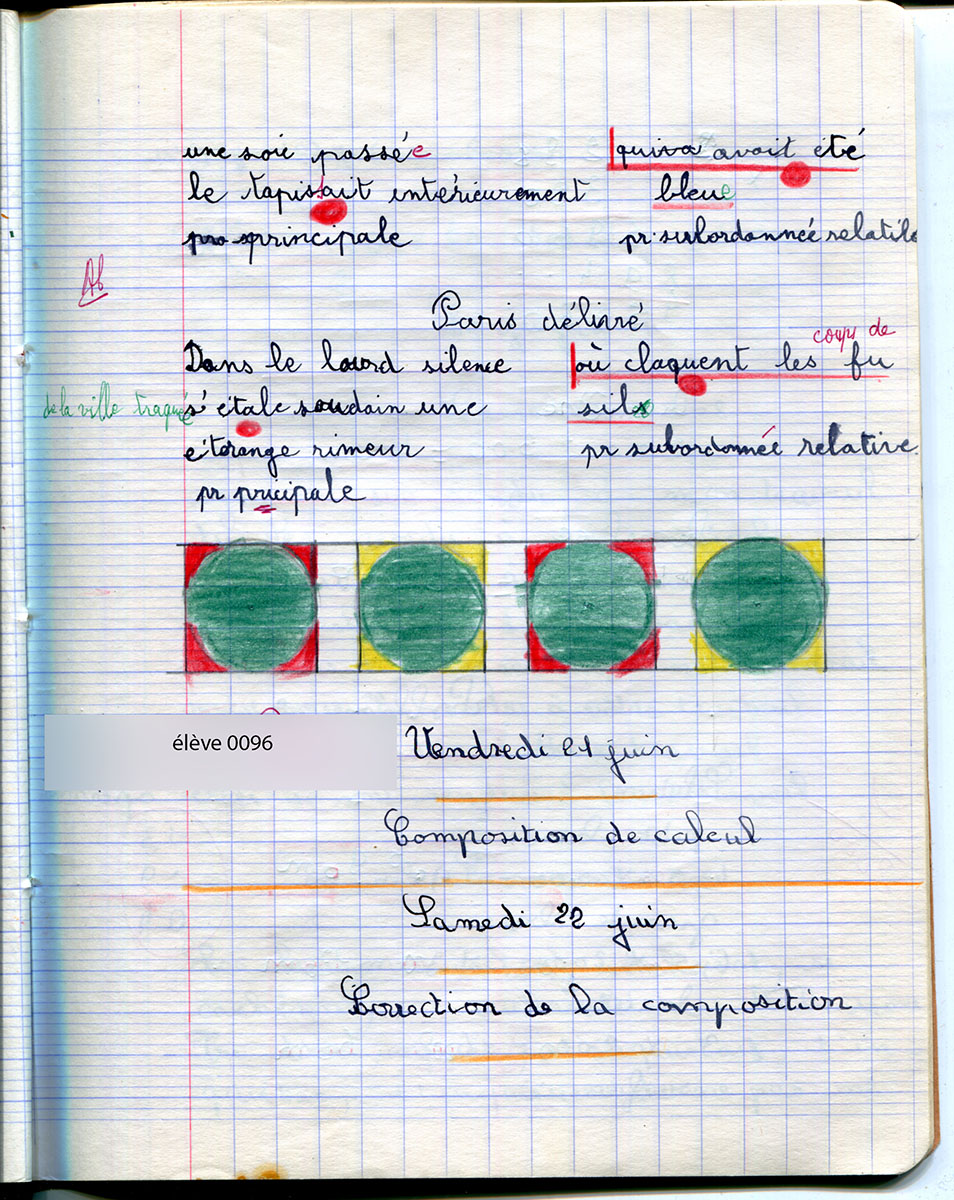 une soie passée quiva avait été
le tapissait intérieurement bleue
pro principale pr. subordonnée relative
Ab
Paris délivré
coups de
Dans le lourd silence où claquent les fu
de la ville traquée s'étale soudain une sils
étrange rimeur pr subordonnée relative
pr pricipale
élève 0096
Vendredi 21 juin
Composition de calcul
Samedi 22 juin
Correction de la composition